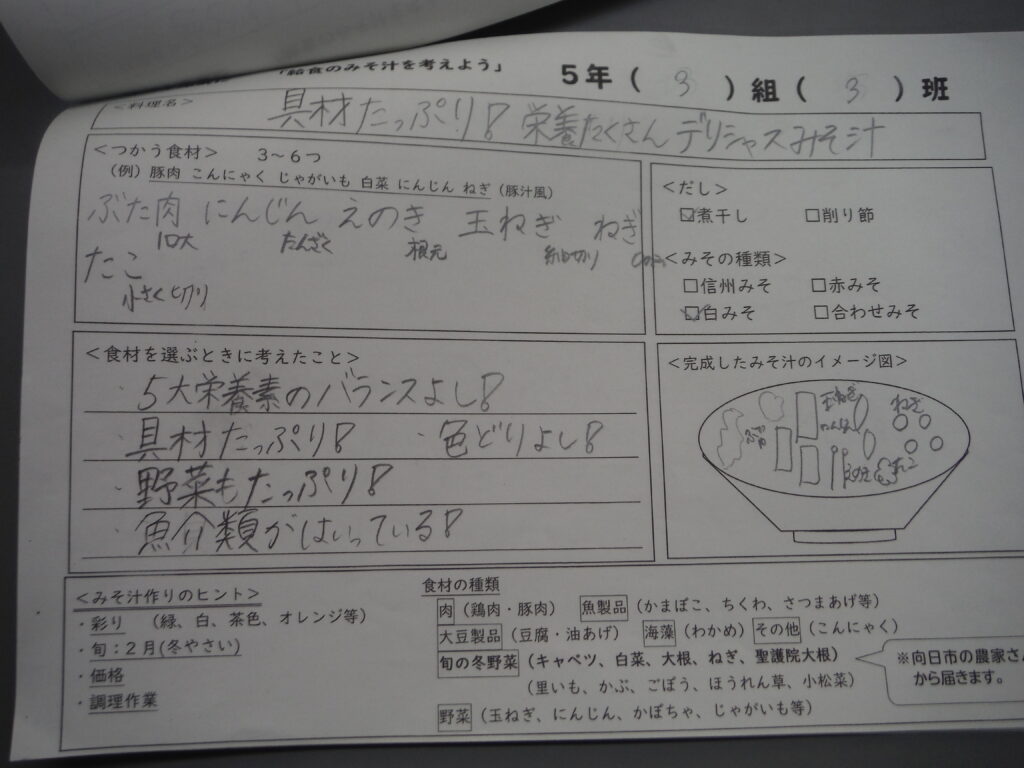 「給食のみそ汁を考えよう」 5年（ 3 ）組（ 3 ）班
＜料理名＞
具材たっぷり！栄養たくさんデリシャスみそ汁
＜つかう食材＞ 3～6つ
（例）豚肉 こんにゃく じゃがいも 白菜 にんじん ねぎ（豚汁風）
ぶた肉 にんじん えのき 玉ねぎ ねぎ
たんざく 根元 細切り
たこ
小さく切り
＜だし＞
☑煮干し □削り節
＜みその種類＞
□信州みそ □赤みそ
☑白みそ □合わせみそ
＜食材を選ぶときに考えたこと＞
・5大栄養素のバランスよし！
・具材たっぷり！ ・色どりよし！
・野菜もたっぷり！
・魚介類がはいっている！
＜完成したみそ汁のイメージ図＞
玉ねぎ ねぎ
にんじん
えのき たこ
＜みそ汁作りのヒント＞
・彩り （緑、白、茶色、オレンジ等）
・旬：2月(冬やさい)
・価格
・調理作業
食材の種類
肉（鶏肉・豚肉） 魚製品（かまぼこ、ちくわ、さつまあげ等）
大豆製品（豆腐・油あげ） 海藻（わかめ）その他（こんにゃく）
旬の冬野菜（キャベツ、白菜、大根、ねぎ、聖護院大根）
（里いも、かぶ、ごぼう、ほうれん草、小松菜）
野菜（玉ねぎ、にんじん、かぼちゃ、じゃがいも等）
※向日市の農家さん
から届きます。